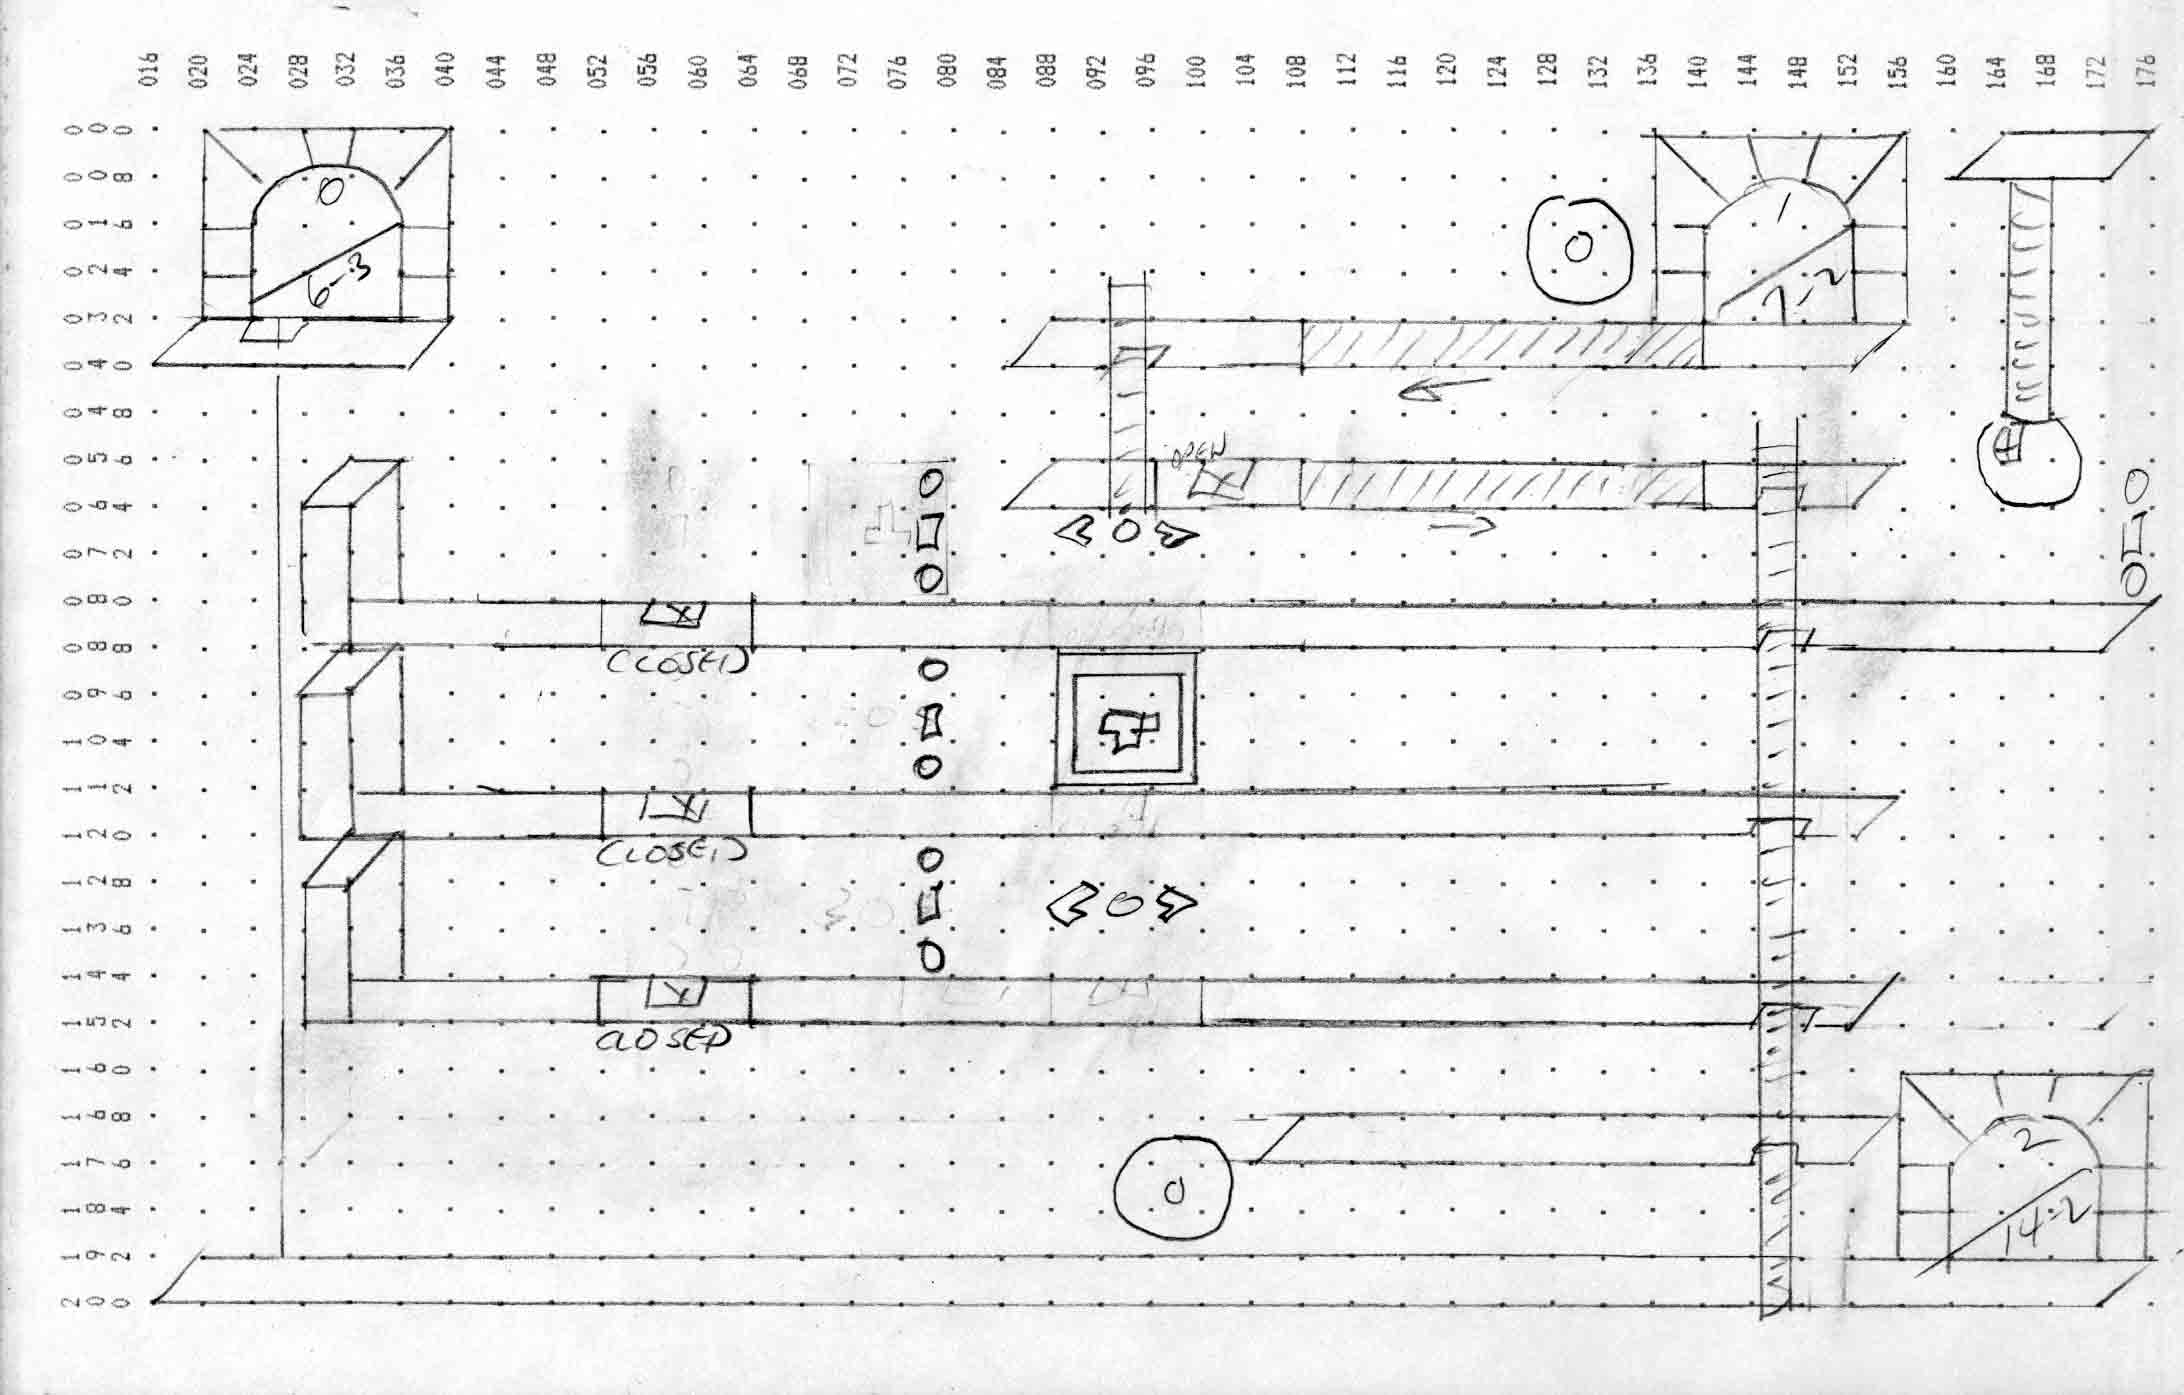 016 020 024 028 032 036 040 044 048 052 056 060 064 068 072 076 080 084 088 092 096 100 104 108 112 116 120 124 128 132 136 140 144 148 152 156 160 164 168 172 176
000
008
016
024
032
040
048
056
064
072
080
088
096
104
112
120
128
136
144
152
160
168
176
184
192
200
0
6-3
0
1
7-2
OPEN
X
0
X
CLOSED
X
CLOSED
0
X
CLOSED
0
2
14-2